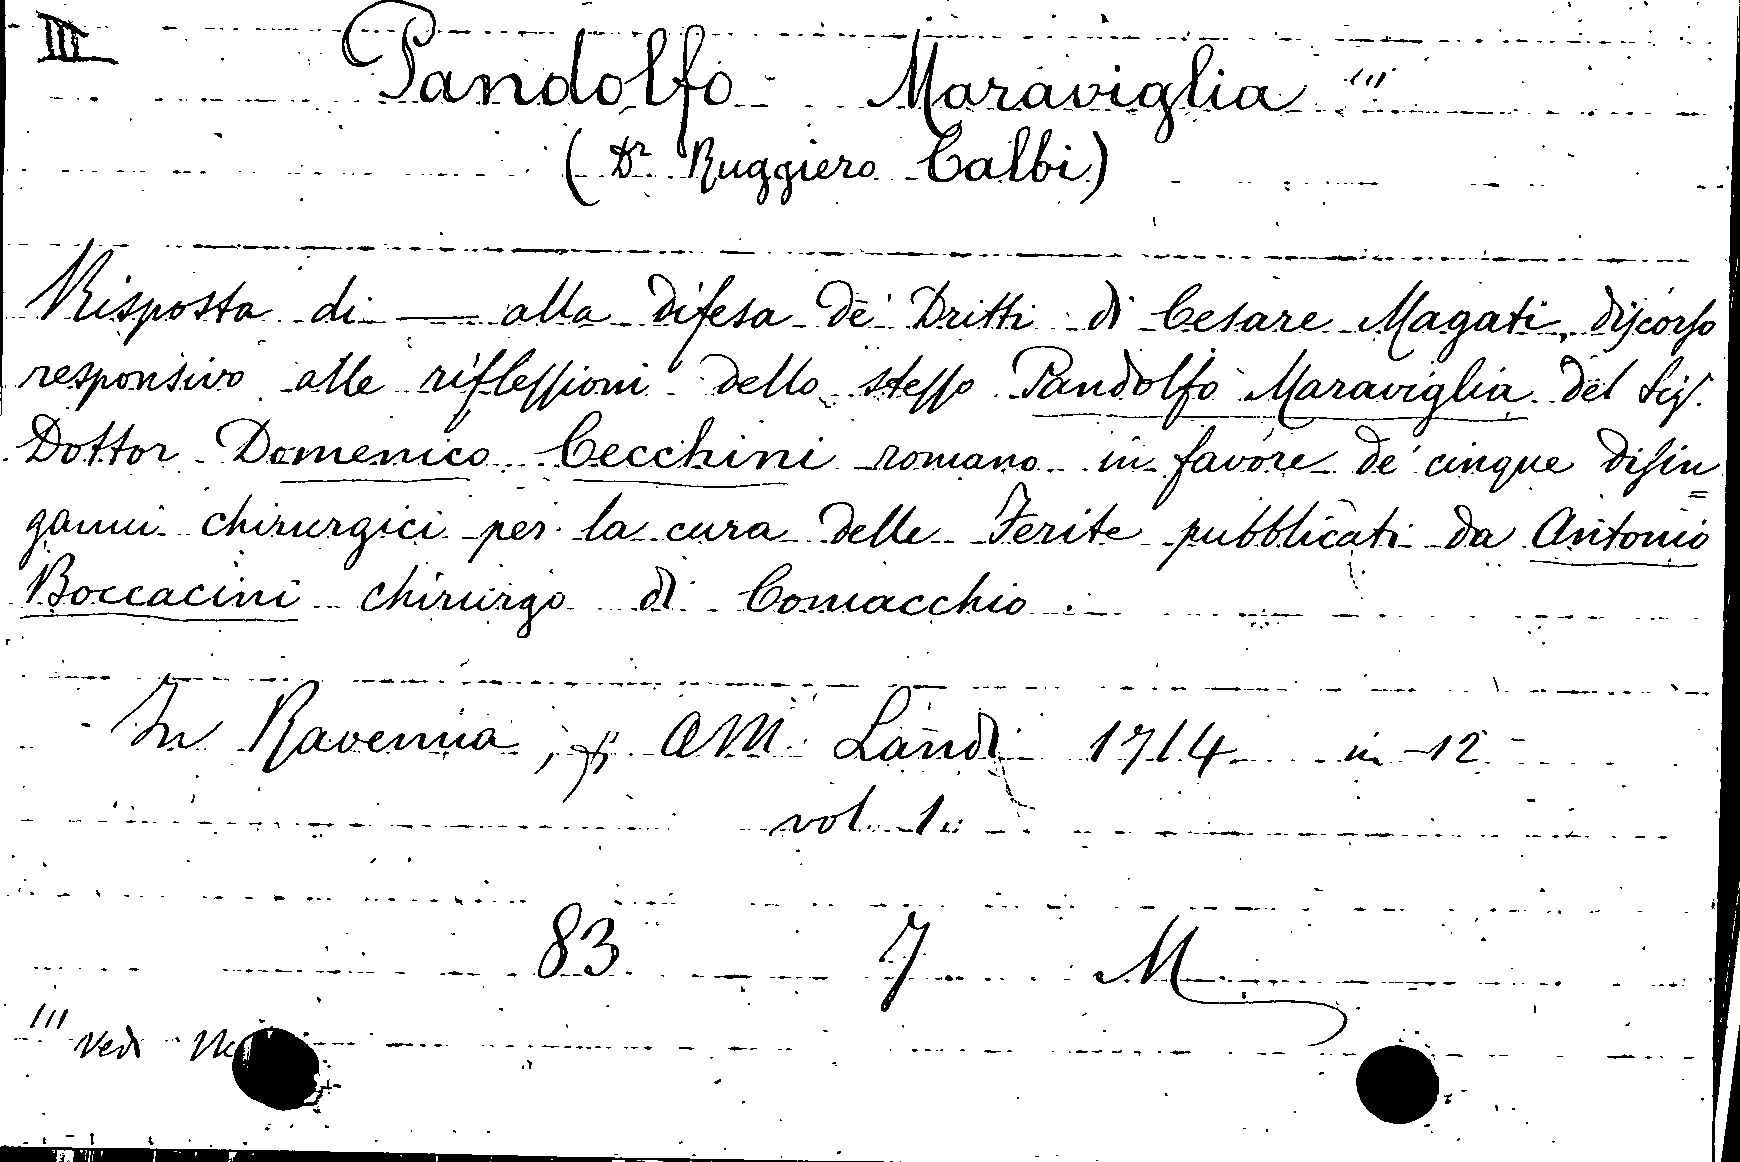 III
Pandolfo Maraviglia (1)
(Dr Ruggiero Calbi)
Risposta di — alla difesa de' Dritti di Cesare Magati, discorso
responsivo alle riflessioni dello stesso Pandolfo Maraviglia del Sig.
Dottor Domenico Cecchini romano in favore de' cinque disin=
ganni chirurgici per la cura delle Ferite pubblicati da Antonio
Boccacini chirurgo di Comacchio.
In Ravenna, p A M Landi 1714 in-12
vol. 1.
83 7 M
(1) Vedi